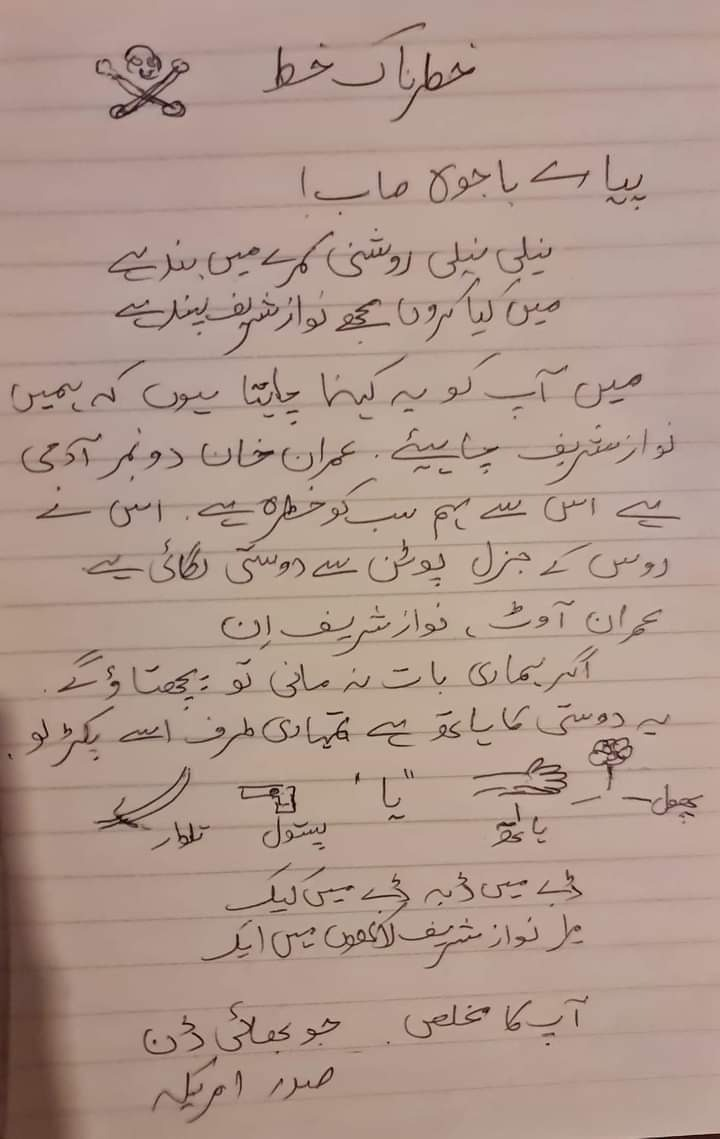 خطرناک خط
پیارے باجوہ صاب!
نیلی نیلی روشنی کمرے میں بند ہے
میں کیا کروں مجھے نواز شریف پسند ہے
میں آپ کو یہ کہنا چاہتا ہوں کہ ہمیں
نواز شریف چاہیئے. عمران خان دو نمبر آدمی
ہے اس سے ہم سب کو خطرہ ہے. اس نے
روس کے جنرل پوٹن سے دوستی لگائی ہے
عمران آوٹ، نواز شریف اِن
اگر ہماری بات نہ مانی تو پچھتاؤ گے.
یہ دوستی کا ہاتھ ہے تمہاری طرف اسے پکڑ لو.
پھول ہاتھ "یا" پستول تلوار
ڈبے میں ڈبہ ڈبے میں کیک
میرا نواز شریف لاکھوں میں ایک
آپ کا مخلص. جو بھائی ڈن
صدر امریکہ